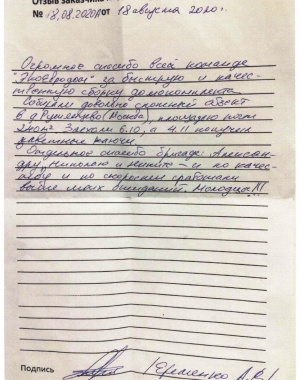 Отзыв заказчика
№ 18.08.2020/1 от 18 августа 2020 г.
Огромное спасибо всей команде
за быструю и качес-
твенную сборку домокомплекта
Собирали довольно сложный объект
в д. (Москва), площадью почти
240м². Заехали 6.10, а 4.11 получил
ключи.
Отдельное спасибо бригаде: Алексан-
дру, Николаю и – и по качес-
тву и по скорости сработали
выше моих ожиданий. Молодцы!!!
Подпись